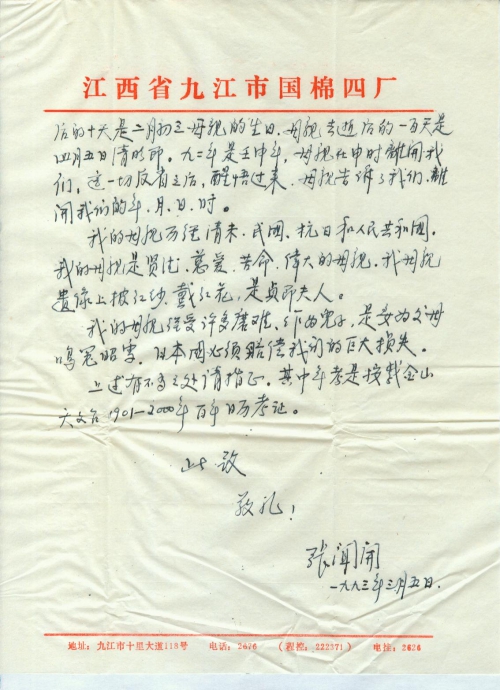 江西省九江市国棉四厂
后的十天是二月初三母親的生日.母親去逝后的一百天是
四月五日清明節。九二年是壬申年,母親在申时離開我
们,这一切反省之后,醒悟过来.母親告诉了我们.離
開我们的年.月.日.时。
我的母親历经清末、民國、抗日和人民共和國.
我的母親是贤淑.慈爱.苦命.偉大的母親.我母親
遗像上披红纱.戴红花,是贞節夫人。
我的母親经受许多磨难.作为兒子,是要为父母
鸣冤昭雪,日本國必须賠償我们的巨大损失。
上述有不当之处请指正。其中年考是按紫金山
天文台1901—2000年百年日历考证。
此致
敬礼!
张闻開
一九九三年三月五日.
地址:九江市十里大道118号 电话:2676 (程控:222371) 电挂:2626